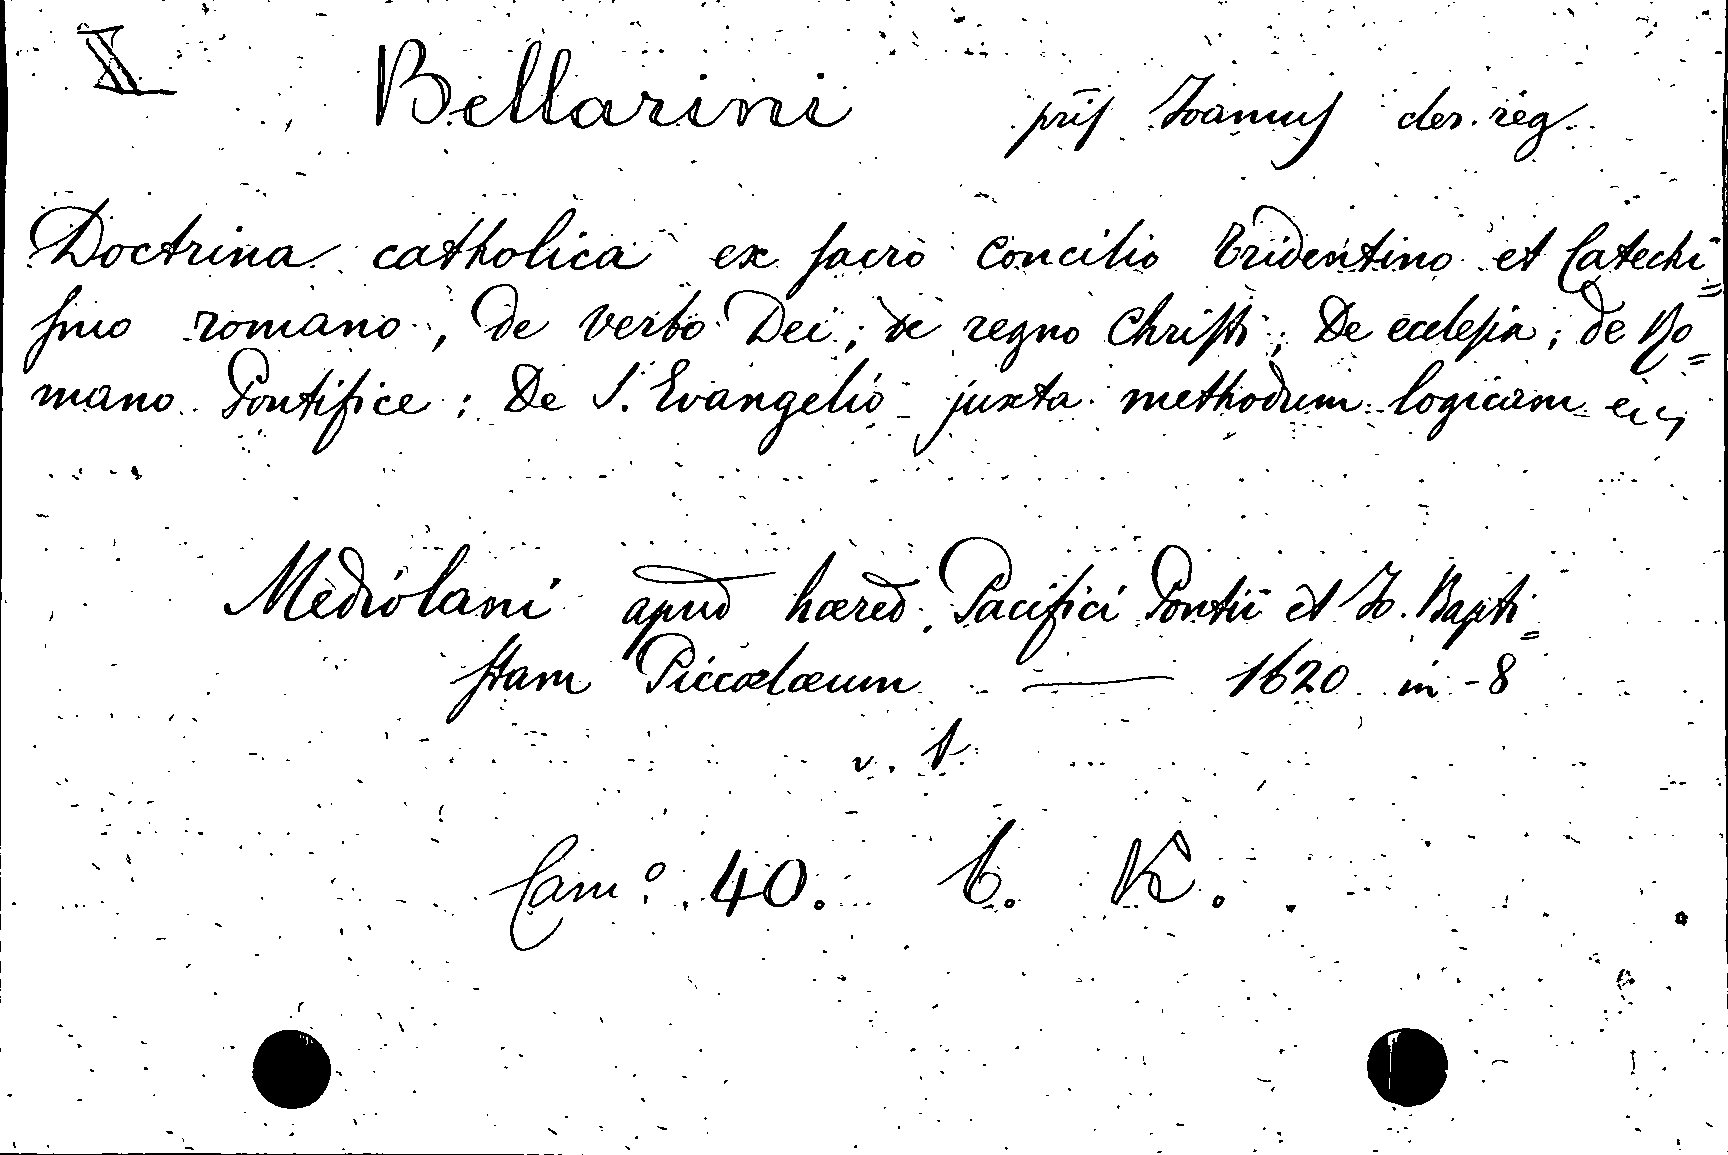 X Bellarini pris Joannis cler. reg.
Doctrina catholica ex sacro Concilio Tridentino et Catechi=
smo romano, de verbo Dei; de regno Christi; De ecclesia; de Ro=
mano Pontifice: De S. Evangelio juxta methodum logicam
Mediolani apud hœred. Pacifici Pontii et Jo. Bapti=
stam Piccalœum — 1620 in-8
v. 1.
Cam:º 40. b. K.